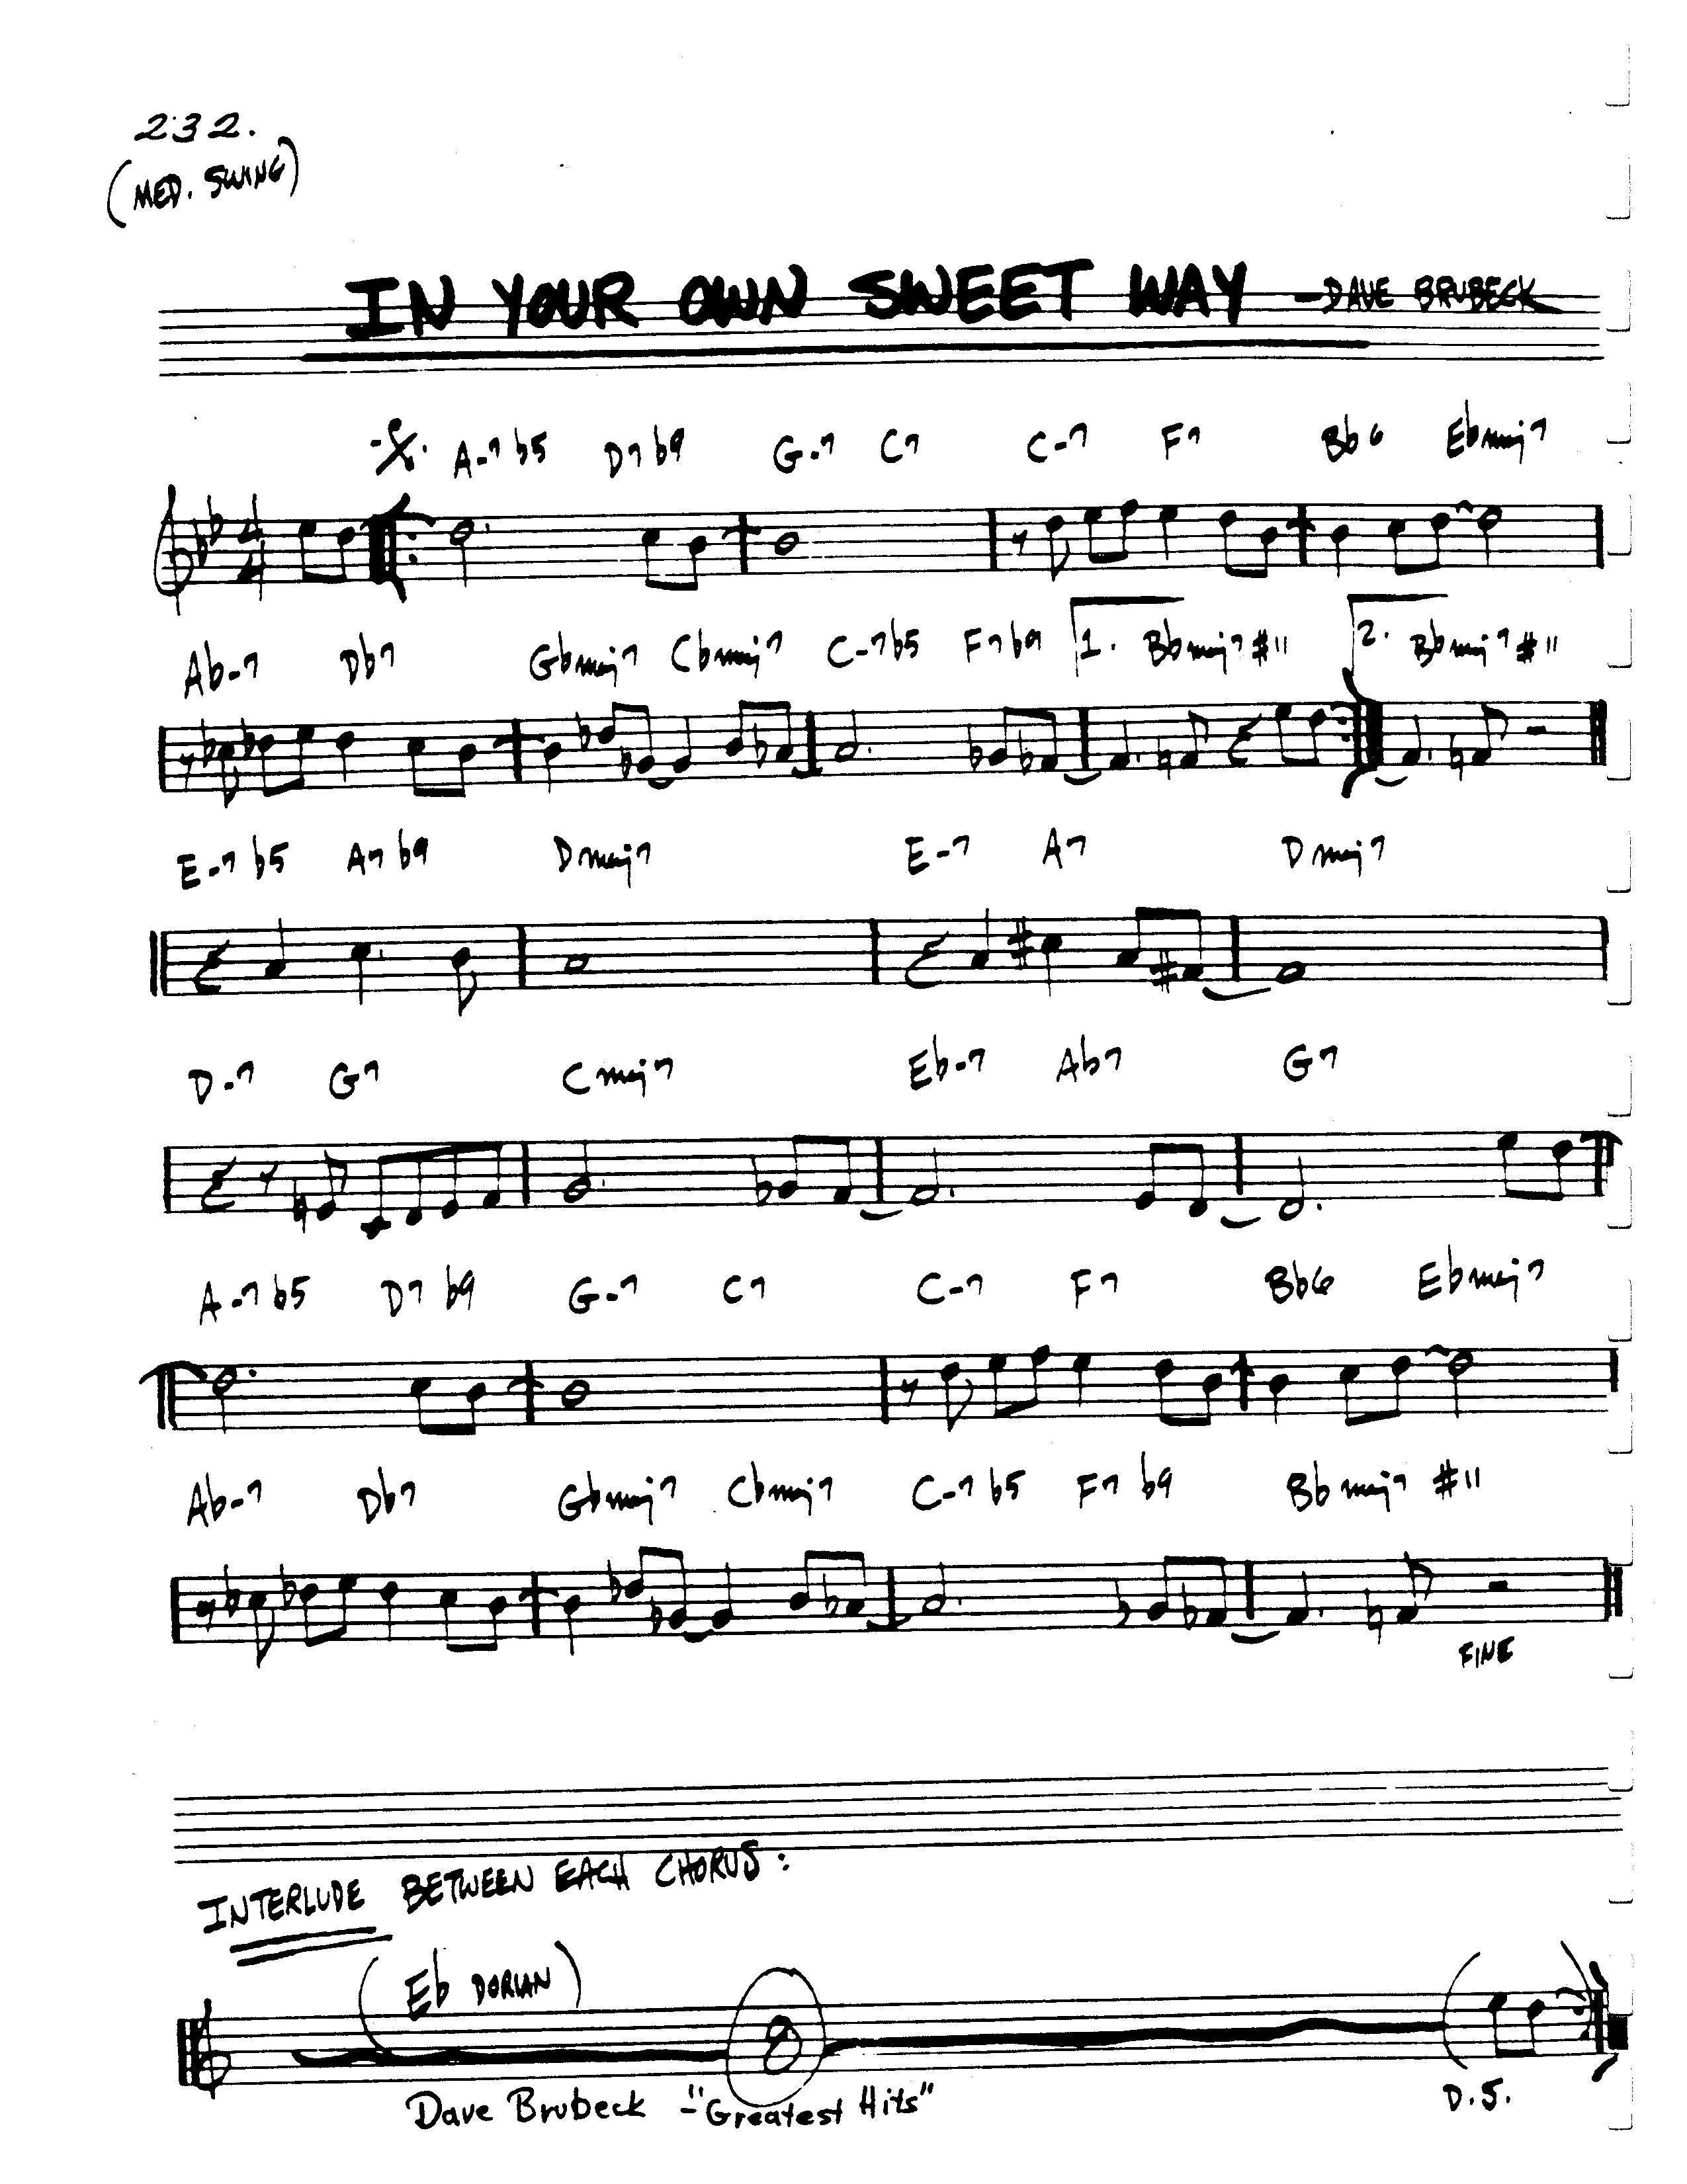 232.
(MED. SWING)
IN YOUR OWN SWEET WAY - DAVE BRUBECK
A-7 b5 D7 b9 G-7 C7 C-7 F7 Bb6 Ebmaj7
4
4
Ab-7 Db7 Gbmaj7 Cbmaj7 C-7b5 F7b9 1. Bbmaj7#11 2. Bbmaj7#11
E-7 b5 A7 b9 Dmaj7 E-7 A7 Dmaj7
D-7 G7 Cmaj7 Eb-7 Ab7 G7
A-7 b5 D7 b9 G-7 C7 C-7 F7 Bb6 Ebmaj7
Ab-7 Db7 Gbmaj7 Cbmaj7 C-7 b5 F7 b9 Bbmaj7 #11
FINE
INTERLUDE BETWEEN EACH CHORUS:
(Eb DORIAN)
8
D.S.
Dave Brubeck - "Greatest Hits"